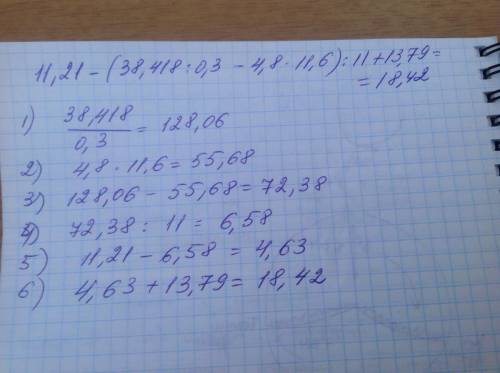 11,21 - (38,418 : 0,3 - 4,8 · 11,6) : 11 + 13,79 =
= 18,42
1) 38,418 / 0,3 = 128,06
2) 4,8 · 11,6 = 55,68
3) 128,06 - 55,68 = 72,38
4) 72,38 : 11 = 6,58
5) 11,21 - 6,58 = 4,63
6) 4,63 + 13,79 = 18,42